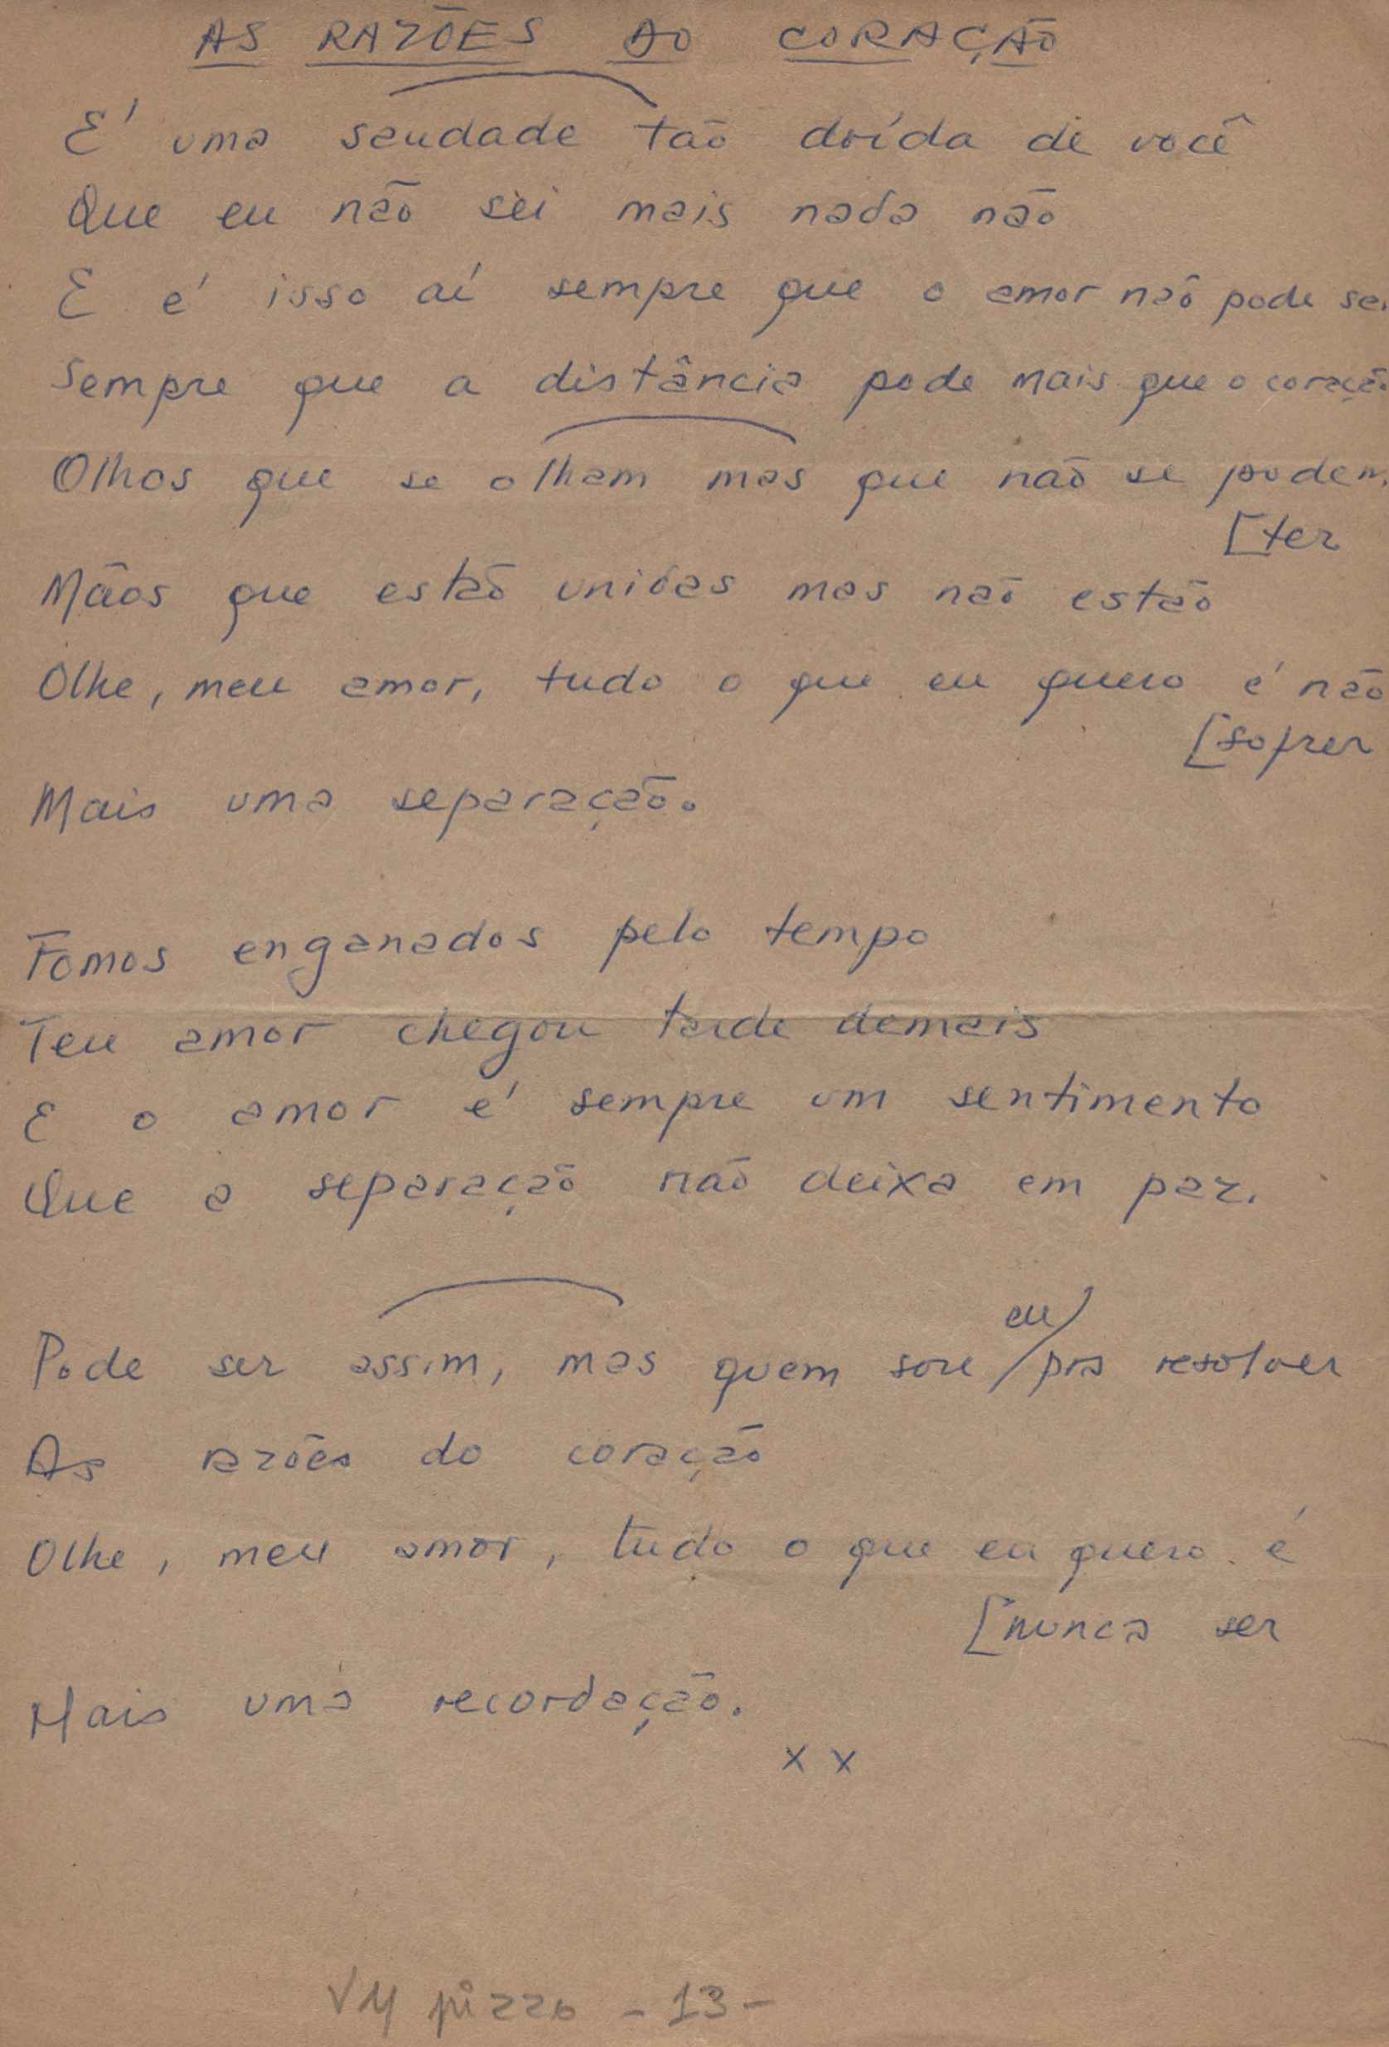 AS RAZÕES DO CORAÇÃO
É uma saudade tão doída de você
Que eu não sei mais nada não
E é isso aí sempre que o amor não pode ser
Sempre que a distância pode mais que o coração
Olhos que se olham mas que não se podem
[ter
Mãos que estão unidas mas não estão
Olhe, meu amor, tudo o que eu quero é não
[sofrer
Mais uma separação.
Fomos enganados pelo tempo
Teu amor chegou tarde demais
E o amor é sempre um sentimento
Que a separação não deixa em paz.
eu
Pode ser assim, mas quem sou / pra resolver
As razões do coração
Olhe, meu amor, tudo o que eu quero é
[nunca ser
Mais uma recordação.
x x
VM - 13 -